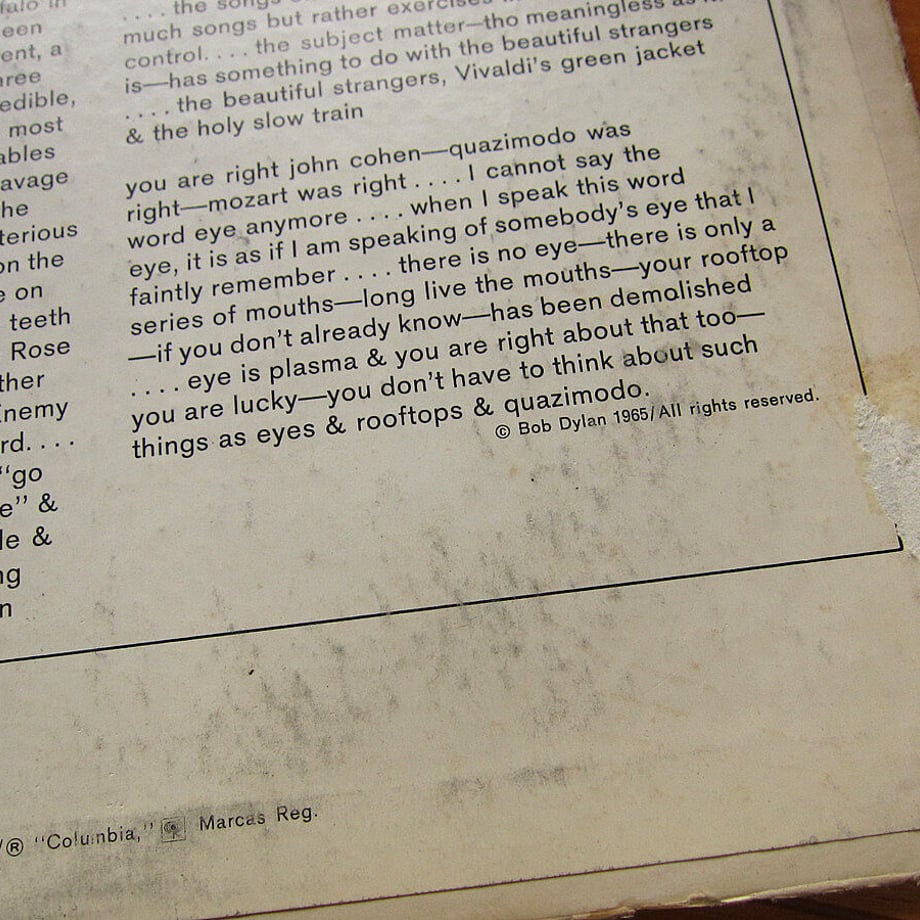 een
ent, a
hree
edible,
most
ables
avage
he
terious
on the
e on
teeth
Rose
ther
Enemy
rd. . . .
“go
e” &
le &
ng
n
. . . . the songs
much songs but rather exercises
control. . . . the subject matter—tho meaningless as
is—has something to do with the beautiful strangers
. . . . the beautiful strangers, Vivaldi’s green jacket
& the holy slow train
you are right john cohen—quazimodo was
right—mozart was right . . . . I cannot say the
word eye anymore . . . . when I speak this word
eye, it is as if I am speaking of somebody’s eye that I
faintly remember . . . . there is no eye—there is only a
series of mouths—long live the mouths—your rooftop
—if you don’t already know—has been demolished
. . . . eye is plasma & you are right about that too—
you are lucky—you don’t have to think about such
things as eyes & rooftops & quazimodo.
© Bob Dylan 1965/All rights reserved.
® “Columbia,” Marcas Reg.